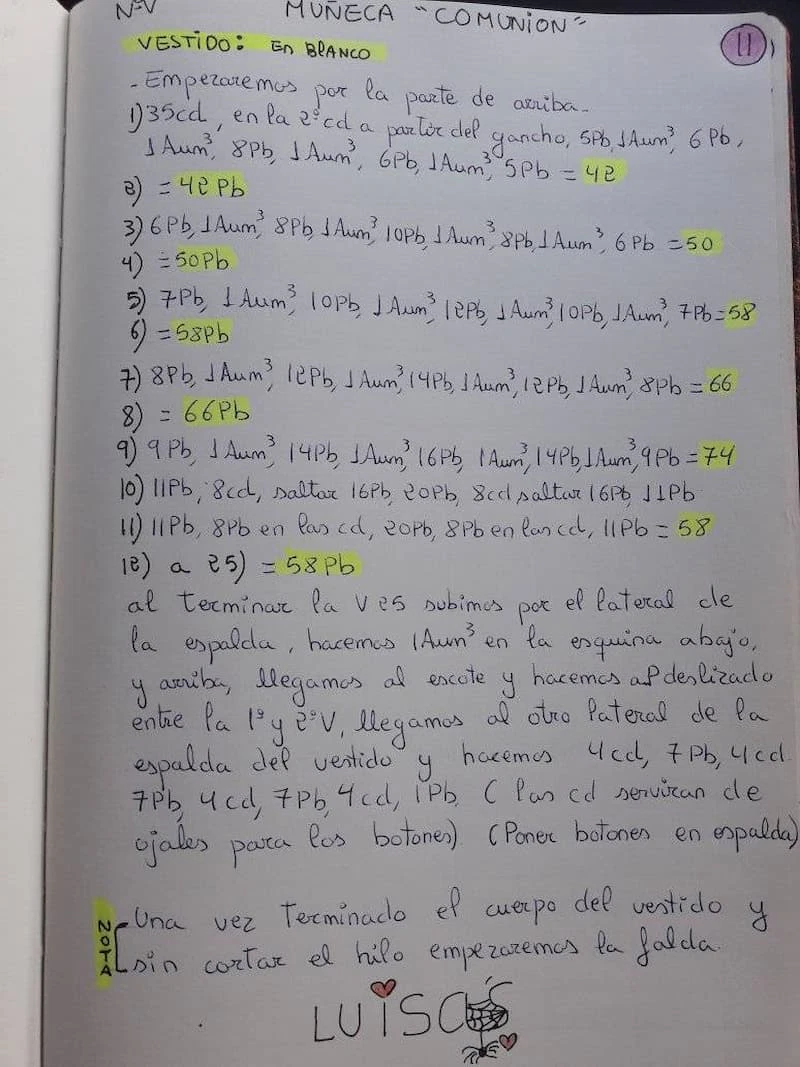 NºV MUÑECA "COMUNION"
11
VESTIDO: En BLANCO
- Empezaremos por la parte de arriba -
1) 35cd, en la 2ºcd a partir del gancho, 5Pb, 1Aum³, 6Pb,
1Aum³, 8Pb, 1Aum³, 6Pb, 1Aum³, 5Pb = 42
2) = 42Pb
3) 6Pb, 1Aum³, 8Pb, 1Aum³, 10Pb, 1Aum³, 8Pb, 1Aum³, 6Pb = 50
4) = 50Pb
5) 7Pb, 1Aum³, 10Pb, 1Aum³, 12Pb, 1Aum³, 10Pb, 1Aum³, 7Pb = 58
6) = 58Pb
7) 8Pb, 1Aum³, 12Pb, 1Aum³, 14Pb, 1Aum³, 12Pb, 1Aum³, 8Pb = 66
8) = 66Pb
9) 9Pb, 1Aum³, 14Pb, 1Aum³, 16Pb, 1Aum³, 14Pb, 1Aum³, 9Pb = 74
10) 11Pb, 8cd, saltar 16Pb, 20Pb, 8cd saltar 16Pb, 11Pb
11) 11Pb, 8Pb en las cd, 20Pb, 8Pb en las cd, 11Pb = 58
12) a 25) = 58Pb
al terminar la V25 subimos por el lateral de
la espalda, hacemos 1Aun³ en la esquina abajo,
y arriba, llegamos al escote y hacemos aP deslizado
entre la 1º y 2ºV, llegamos al otro lateral de la
espalda del vestido y hacemos 4cd, 7Pb, 4cd
7Pb, 4cd, 7Pb, 4cd, 1Pb. (las cd serviran de
ojales para los botones). (Poner botones en espalda)
NOTA
Una vez Terminado el cuerpo del vestido y
sin cortar el hilo empezaremos la falda.
LUISCS